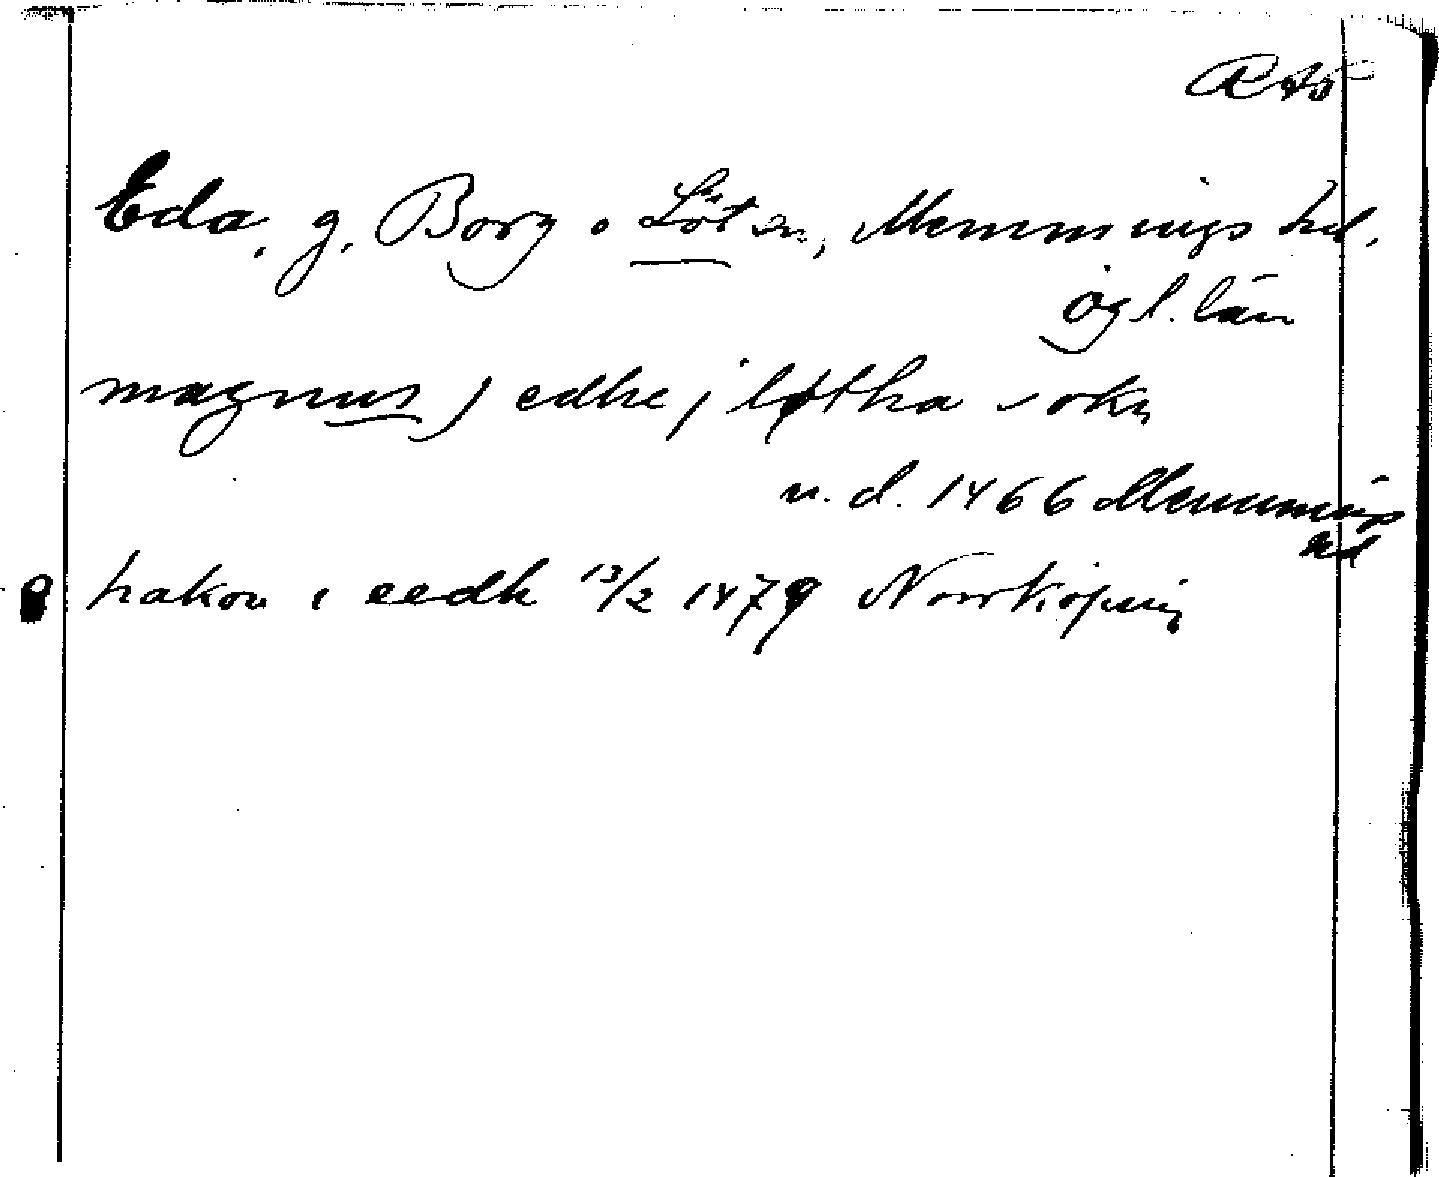 Eda, g. Borg o Löt sn, Memmings hd,
ögl. län
magnus j edhe j løtha sokn
u. d. 1466 Memmings
hd
hakon i eedh 13/2 1479 Norrköping